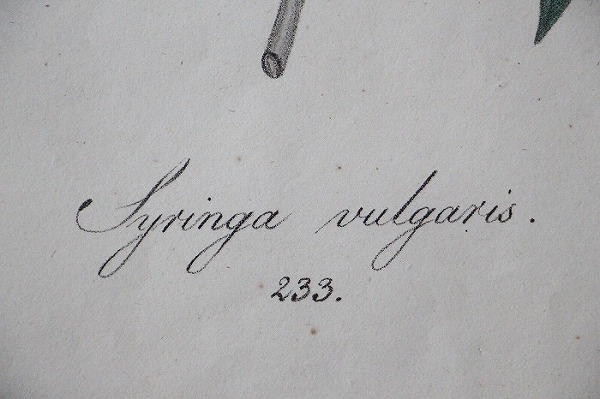 Syringa vulgaris.
233.